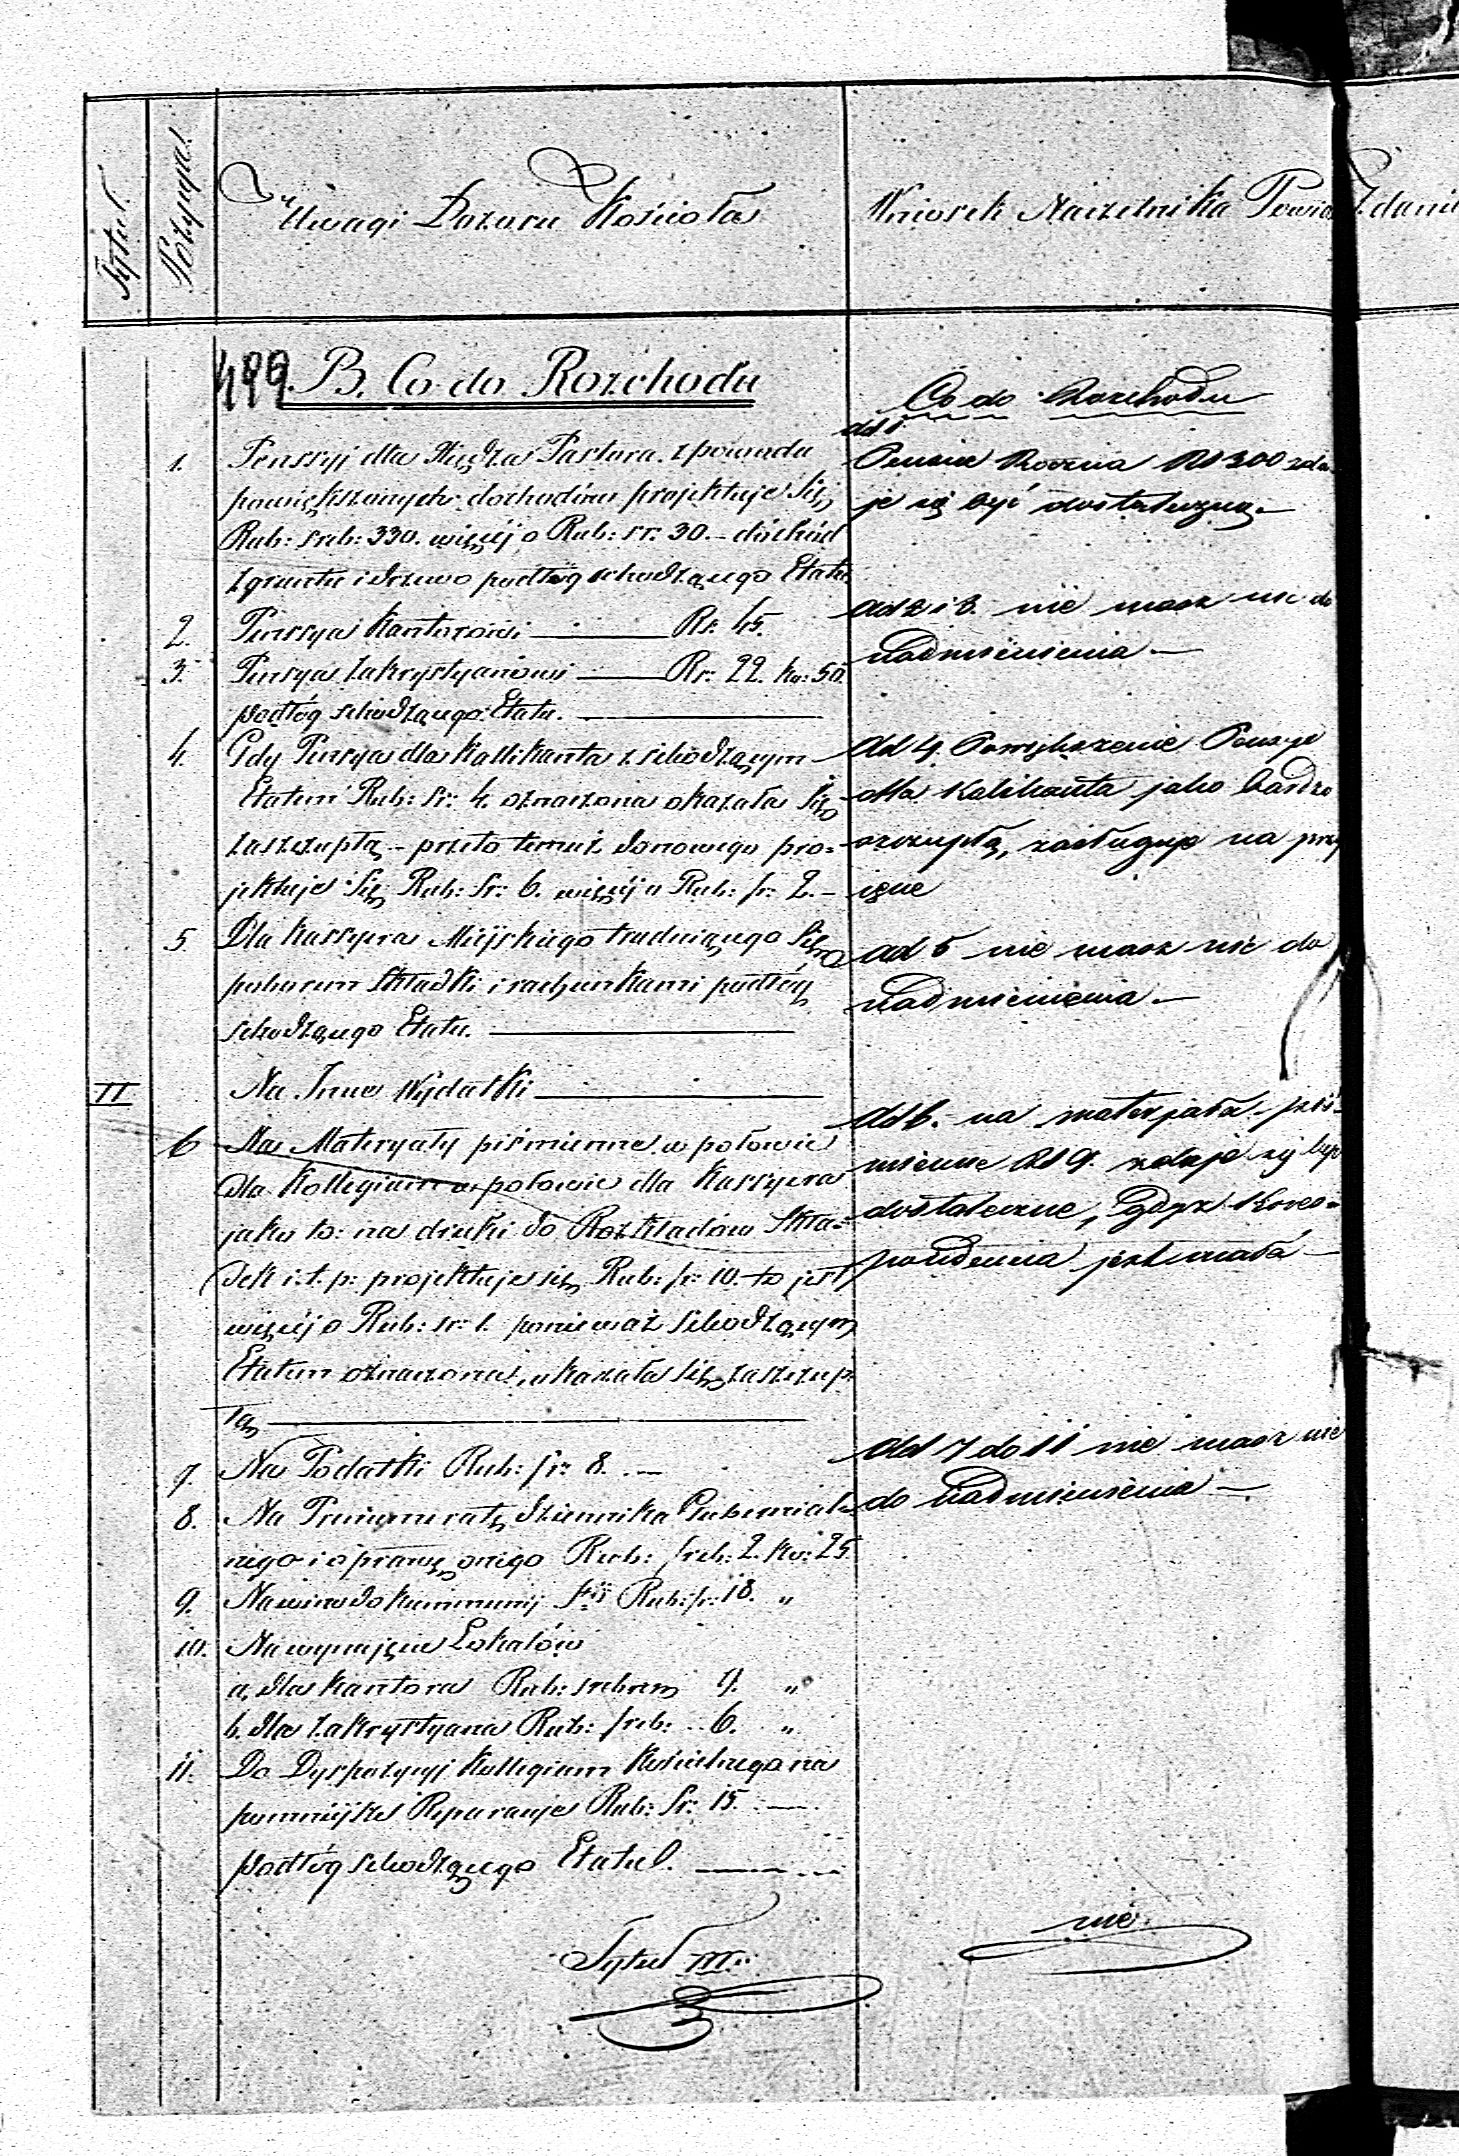 Tytuł.
Pozycya.
Uwagi Dozoru Kościoła
Wniosek Naczelnika Powia
Zdanie
499.
B. Co do Rozchodu
1. Penssyi dla Księdza Pastora z powodu
powiększonych dochodów projektuje się
Rub: sreb: 330. więcéj o Rub: sr: 30. – dochód
z gruntu i drzewo podług schodzącego Etatu
2. Penssya Kantorowi Rs. 45.
3. Pensya Zakrystyanowi Rs. 22. ko: 50.
podług schodzącego Etatu.
4. Gdy Pensya dla Kallikanta z schodzącym
Etatem Rub: Sr: 4. oznaczona okazała się
zaszczupłą – przeto temuż donowego pro=
jektuje się Rub: Sr: 6. więcéj o Rub: sr: 2. –
5 Dla Kassyera Miejskiego trudniącego się
poborem Składki i rachunkami podług
schodzącego Etatu.
II Na Inne Wydatki
6 Na Materyały piśmienne w połowie
dla Kollegium w połowie dla Kassyera
jako to: na druki do Rozkładów Skła=
dek i. t. p: projektuje się Rub: sr: 10. to jest
więcéj o Rub: sr: 1. ponieważ schodzącym
Etatem oznaczona, okazała się zaszczup
łą
7. Na Podatki Rub: sr: 8. —
8. Na Prenumeratę Dziennika Gubernial=
nego i oprawę onego Rub: sreb: 2. ko: 25.
9. Na wino do kommunij Stéj Rub: sr: 18. „
10. Na wynajęcie Lokalów
a, dla Kantora Rub: srebrem 9. „
b. dla Zakrystyana Rub: sreb: 6. „
11. Do Dyspozycyj Kollegium Kościelnego na
pomniejsze Reparacye Rub: Sr: 15. —
podług schodzącego Etatu.
Tytuł III.
Co do Rozchodu
ad 1
Pensia Roczna RS 300 zda=
je się być dostateczną —
ad 2 i 3. nie masz nic do
nadmienienia —
Ad 4. Powiększenie Pensyi
dla Kalikanta jako bardzo
szczupłą, zasługuje na przy
ięcie
ad 5 nie masz nic do
nadmienienia —
Ad 6. na materjała piś=
mienne RS 9. zdaje się być
dostateczne, gdyż Kores=
pondencia jest mała —
Ad 7 do 11 nie masz nic
do nadmienienia —
nic.